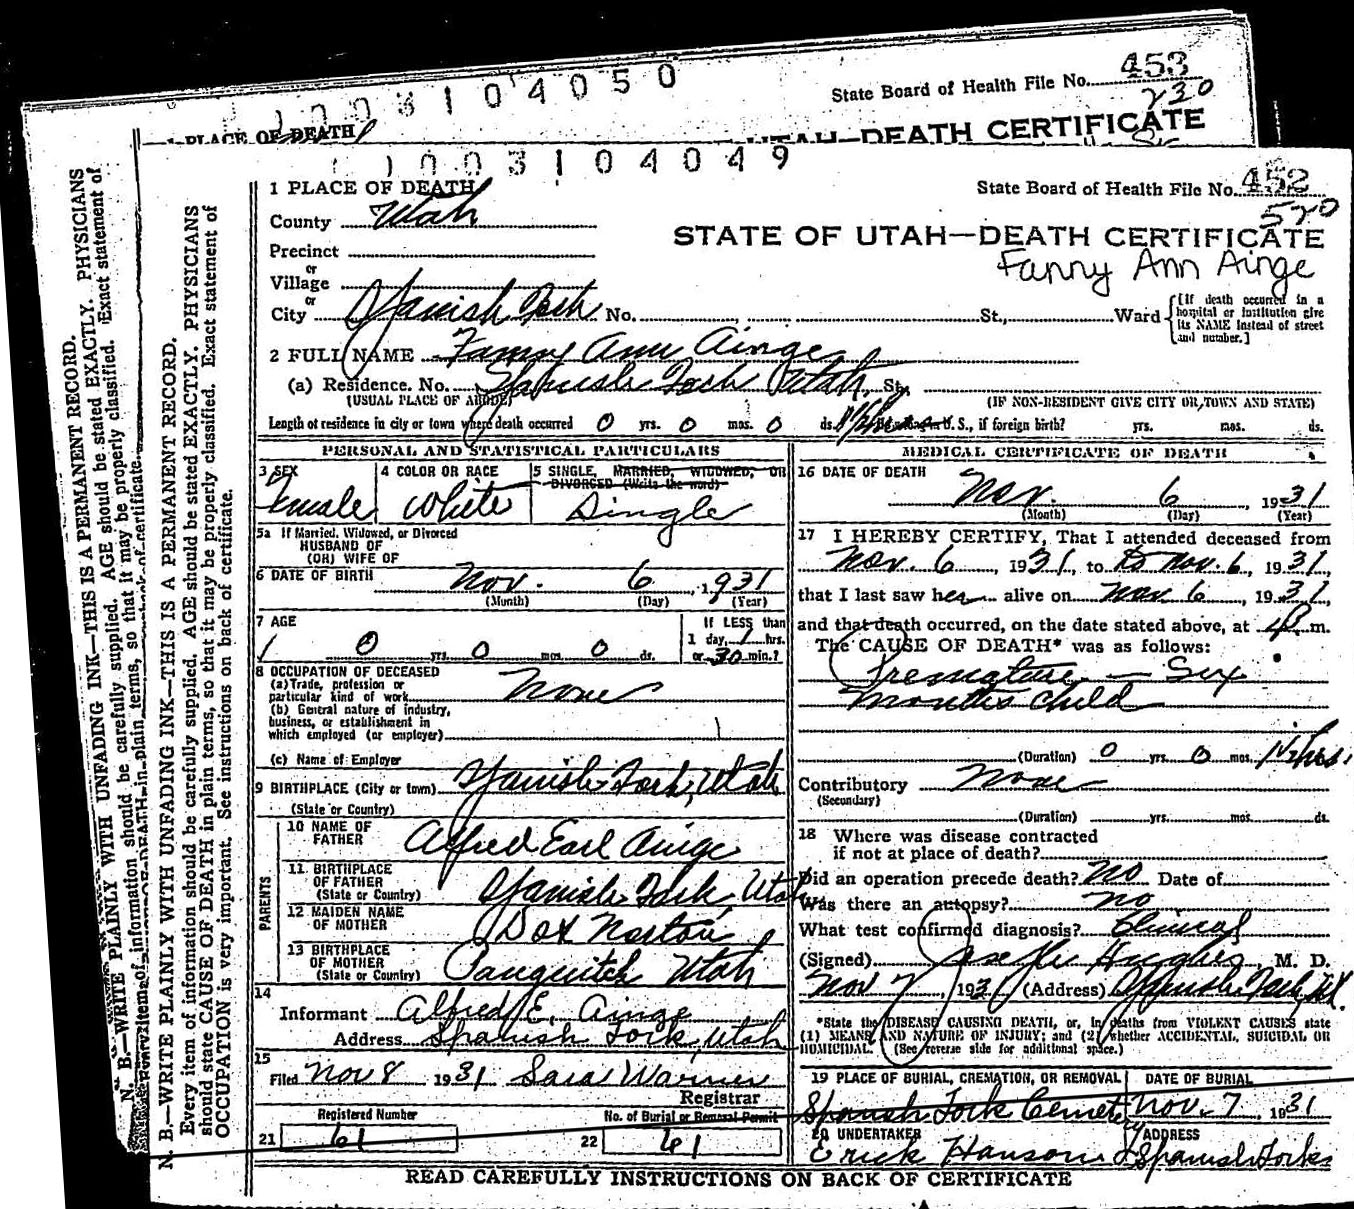 1003104050
State Board of Health File No. 453
230
1 PLACE OF DEATH
UTAH—DEATH CERTIFICATE
1003104049
1 PLACE OF DEATH
State Board of Health File No. 452
570
County Utah
STATE OF UTAH—DEATH CERTIFICATE
Fanny Ann Ainge
Precinct
or
Village
or
City Spanish Fork No. St., Ward
[If death occurred in a
hospital or institution give
its NAME instead of street
and number.]
2 FULL NAME Fanny Ann Ainge
(a) Residence. No. Spanish Fork Utah, St.,
(USUAL PLACE OF ABODE) (IF NON-RESIDENT GIVE CITY OR TOWN AND STATE)
Length of residence in city or town where death occurred 0 yrs. 0 mos. 0 ds. U. S., if foreign birth? yrs. mos. ds.
PERSONAL AND STATISTICAL PARTICULARS
3 SEX
Female
4 COLOR OR RACE
White
5 SINGLE, MARRIED, WIDOWED, OR
DIVORCED (Write the word)
Single
5a If Married, Widowed, or Divorced
HUSBAND OF
(OR) WIFE OF
6 DATE OF BIRTH Nov. 6, 1931
(Month) (Day) (Year)
7 AGE
0 yrs. 0 mos. 0 ds.
If LESS than
1 day, 1 hrs.
or 30 min.?
8 OCCUPATION OF DECEASED
(a) Trade, profession or
particular kind of work None
(b) General nature of industry,
business, or establishment in
which employed (or employer)
(c) Name of Employer
9 BIRTHPLACE (City or town) Spanish Fork, Utah
(State or Country)
PARENTS
10 NAME OF
FATHER Alfred Earl Ainge
11 BIRTHPLACE
OF FATHER
(State or Country) Spanish Fork, Utah
12 MAIDEN NAME
OF MOTHER Dot Norton
13 BIRTHPLACE
OF MOTHER
(State or Country) Panguitch Utah
14
Informant Alfred E. Ainge
Address Spanish Fork, Utah
15
Filed Nov 8 1931 Sara Warner
Registrar
Registered Number
21 61
No. of Burial or Removal Permit
22 61
MEDICAL CERTIFICATE OF DEATH
16 DATE OF DEATH
Nov. 6, 1931
(Month) (Day) (Year)
17 I HEREBY CERTIFY, That I attended deceased from
Nov. 6, 1931, to Nov. 6, 1931,
that I last saw her alive on Nov 6, 1931,
and that death occurred, on the date stated above, at m.
The CAUSE OF DEATH* was as follows:
Premature — Six
months child
(Duration) 0 yrs. 0 mos. 1 1/2 hrs.
Contributory None
(Secondary)
(Duration) yrs. mos. ds.
18 Where was disease contracted
if not at place of death?
Did an operation precede death? No Date of
Was there an autopsy? no
What test confirmed diagnosis? Clinical
(Signed) Hughes, M. D.
Nov 7, 1931 (Address) Spanish Fork, Ut.
*State the DISEASE CAUSING DEATH, or, in deaths from VIOLENT CAUSES state
(1) MEANS AND NATURE OF INJURY; and (2) whether ACCIDENTAL, SUICIDAL OR
HOMICIDAL. (See reverse side for additional space.)
19 PLACE OF BURIAL, CREMATION, OR REMOVAL
Spanish Fork Cemetery
DATE OF BURIAL
Nov. 7, 1931
20 UNDERTAKER
Erick Hanson
ADDRESS
Spanish Fork
READ CAREFULLY INSTRUCTIONS ON BACK OF CERTIFICATE
N. B.—WRITE PLAINLY WITH UNFADING INK—THIS IS A PERMANENT RECORD.
Every item of information should be carefully supplied. AGE should be stated EXACTLY. PHYSICIANS
should state CAUSE OF DEATH in plain terms, so that it may be properly classified. Exact statement of
OCCUPATION is very important. See instructions on back of certificate.
N. B.—WRITE PLAINLY WITH UNFADING INK—THIS IS A PERMANENT RECORD.
Every item of information should be carefully supplied. AGE should be stated EXACTLY. PHYSICIANS
DEATH in plain terms, so that it may be properly classified. Exact statement of
certificate.